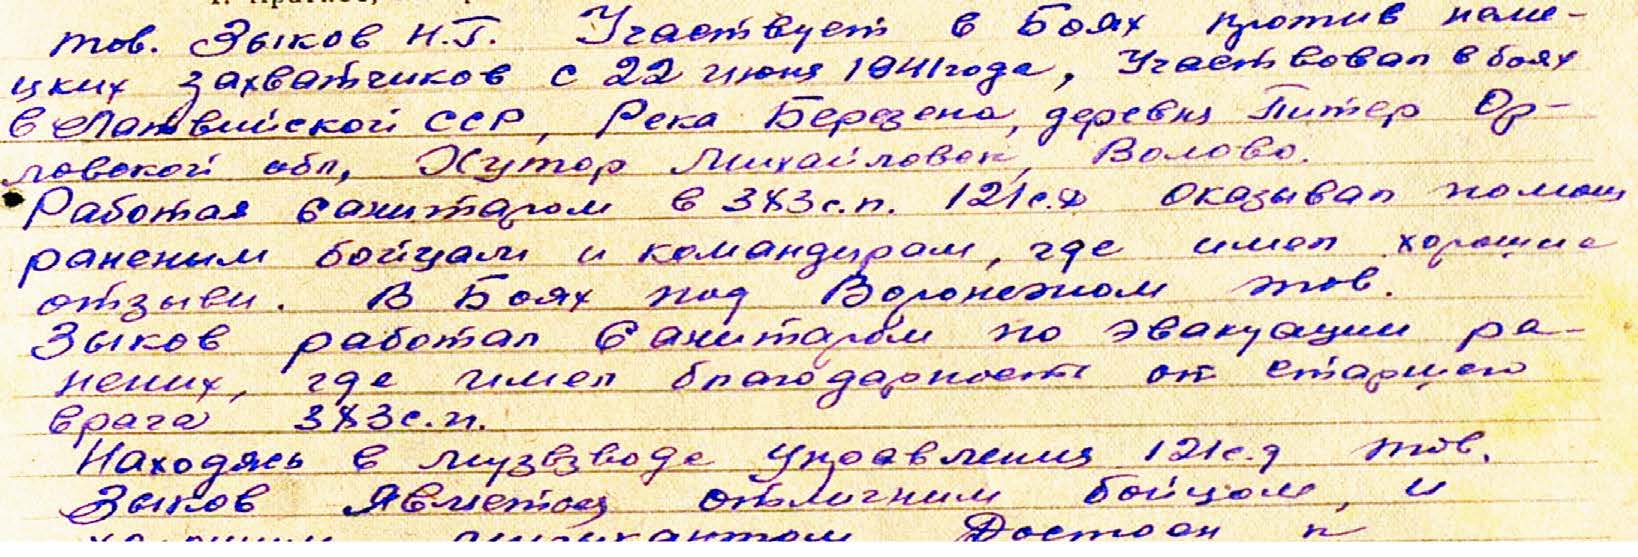 тов. Зыков Н.Г. Участвует в Боях против неме-
цких захватчиков с 22 июня 1941 года, Участвовал в боях
в Латвийской ССР, Река Березена, деревня Питер Ор-
ловской обл, Хутор Михайловск, Волово.
Работая санитаром в 383 с.п. 121 с.д оказывал помощ
раненим бойцам и командирам, где имел хорошие
отзыви. В Боях под Воронежом тов.
Зыков работал Санитаром по эвакуации ра-
нених, где имел благодарность от старшего
врача 383 с.п.
Находясь в музвзводе Управления 121 с.д тов.
Зыков Является отличним бойцом, и
музикантом Достоен к